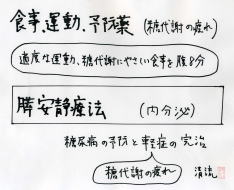 食事、運動、予防薬 (糖代謝の疲れ)
適度な運動、糖代謝にやさしい食事を腹8分
膵安静療法 (内分泌)
糖尿病の予防と軽症の完治
糖代謝の疲れ